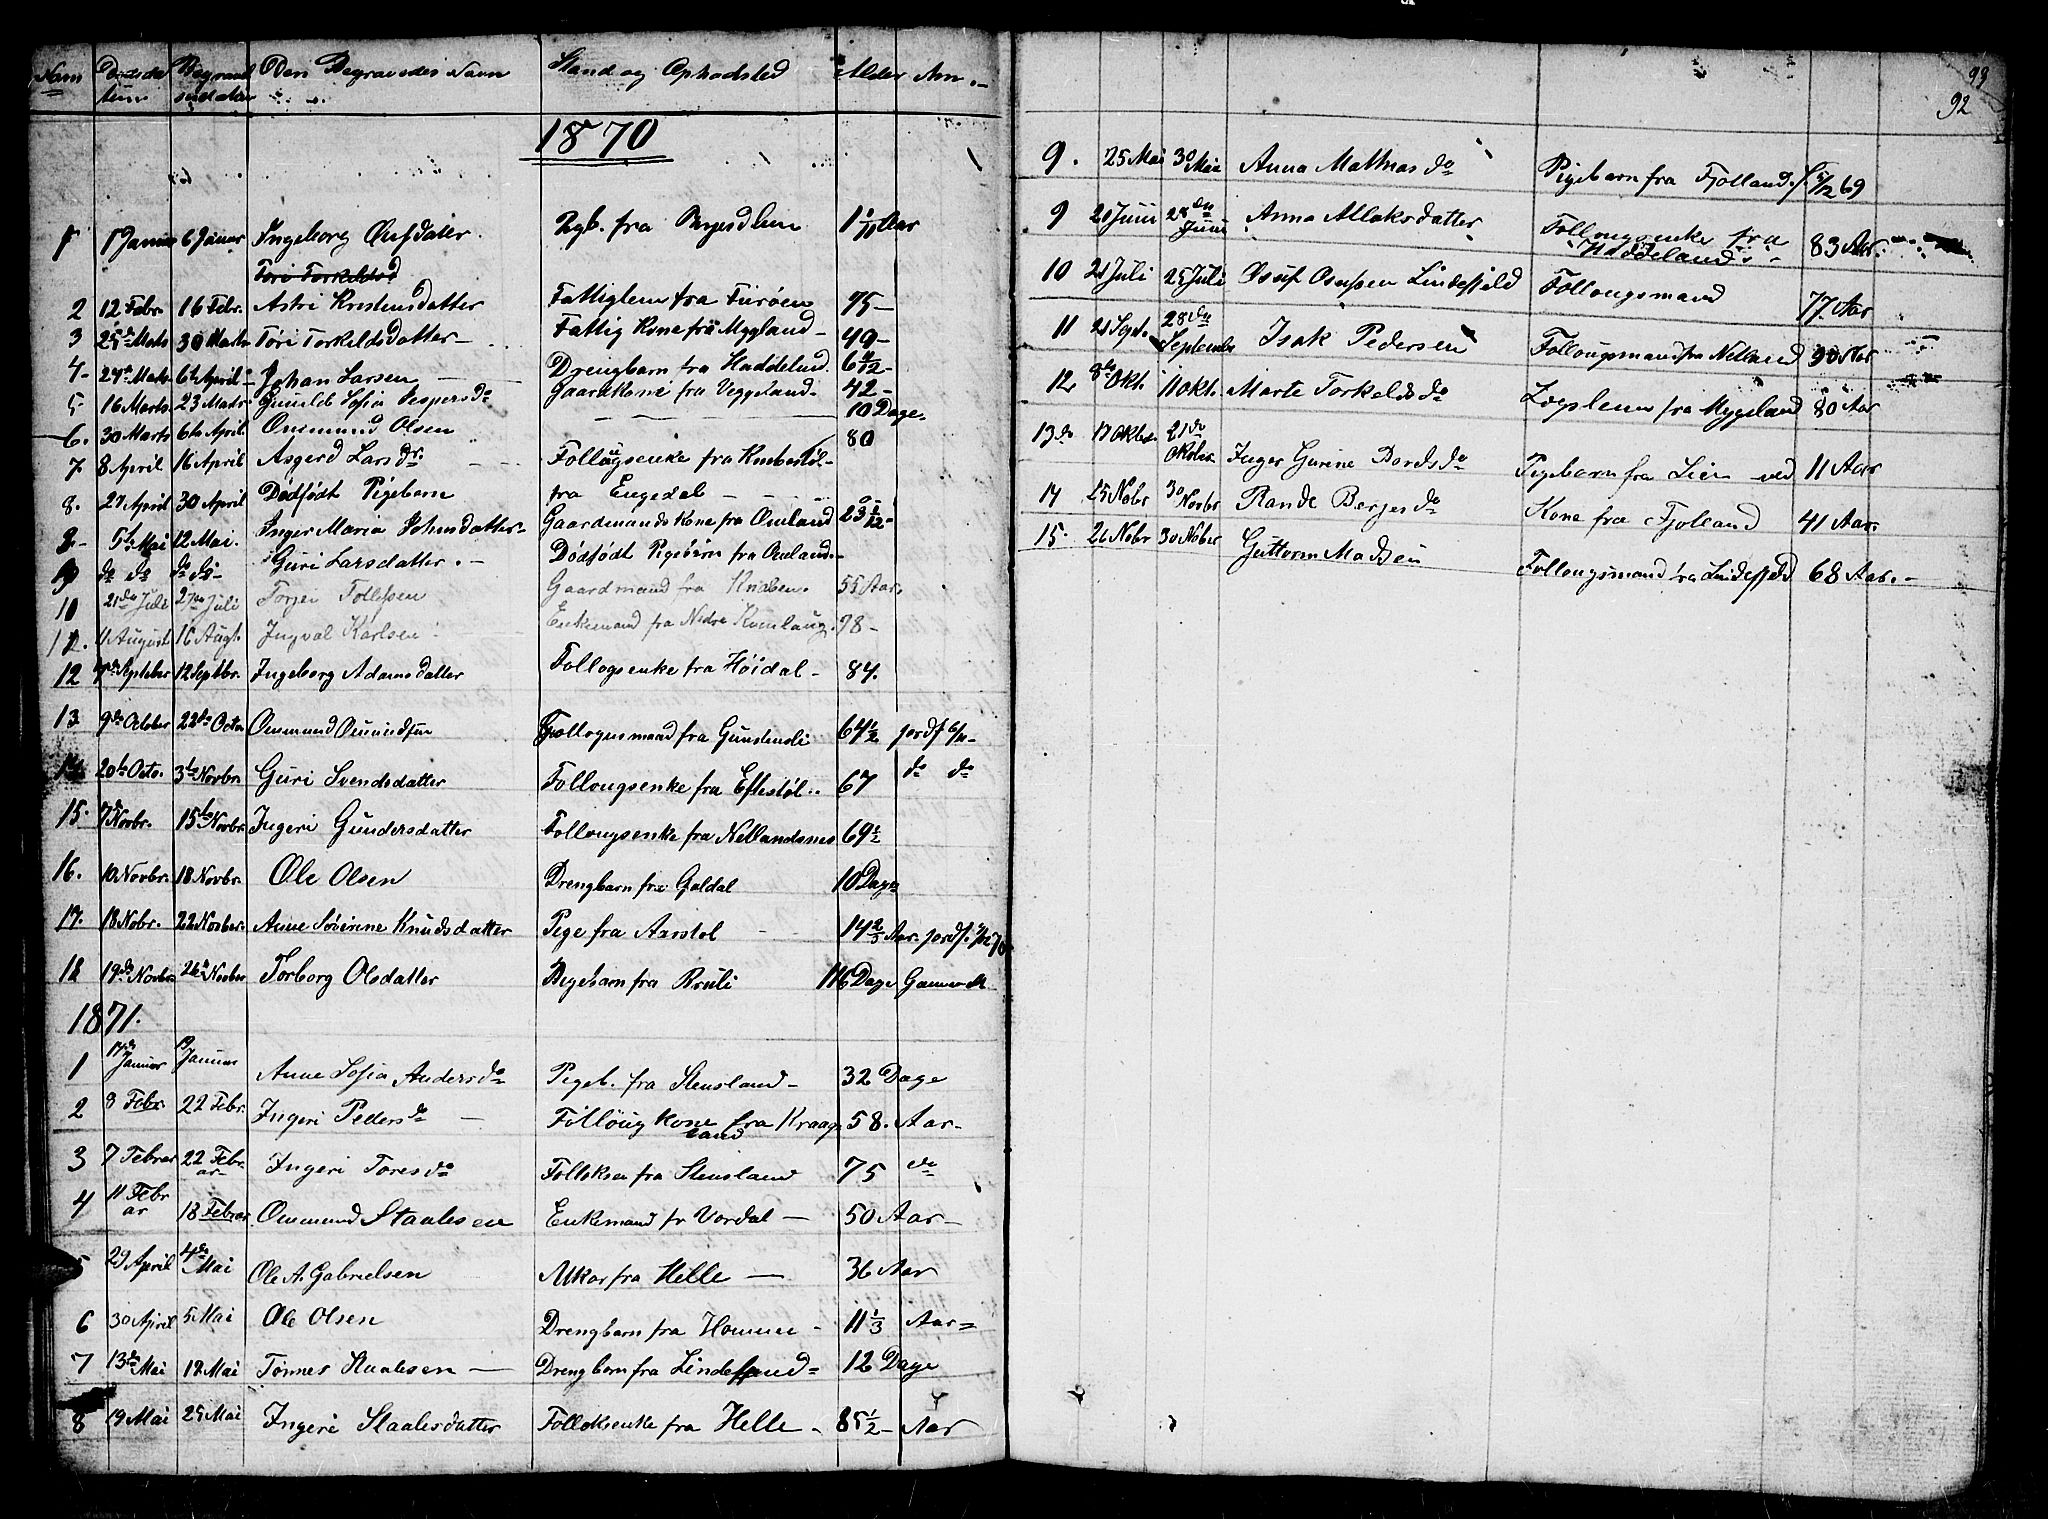 Num Dødsda Begravel Den Begravedes Navn Stand og Opholdsted Alder Anm.
tum sesdatum
1870
1 1 Januar 6 Januar Ingeborg Oufdatter Pgb. fra 1 1/11 Aar
Tori Torkeldsd
2 12 Febr. 16 Febr. Astri Kristensdatter Fattiglem fra Furøen 75 -
3 25de Marts 30 Marts Tori Torkeldsdatter Fattig Kone fra Mygland - 49 -
4 - 6te April Johan Larsen Drengbarn fra Haddeland. 6 -
5 16 Marts 23 Marts Gunild Sofia Jespersdr Gaardkone fra Veggeland. 42 -
6. 30 Marts 6te April Ommund Olsen 10 Dage
7. 8 April 16 April Asgerd Larsdr. Follougsenke fra Knebestøl - 80
8. 27 April 30 April Dødfødt Pigebarn fra Engedal -
5te Mai 12 Mai. Inger Maria Johnsdatter - Gaardmandskone fra Omland 23 5/12 -
do do do do Guri Larsdatter. - Dødfødt Pigebørn fra Omland. -
10 21de Juli 27de Juli Torjei Tollefsen Gaardmand fra Knaben. 55 Aar.
11. 11 August 16 Augt. Ingval Karlsen Enkemand fra Nedre Kvinlaug. 78 -
12 7de September 12 Septbr. Ingeborg Adamsdatter Follogsenke fra Høidal - 84.
13 9de October 22de Octo. Ommund Omundsen Follogusmand fra Gundensli 64 1/2 jordf 6/11 -
14 20te Octo. 3te Novbr. Guri Svendsdatter Follougsenke fra Eftestøl.. 67 do do
15. 7de Novbr. 15te Novbr. Ingeri Gundersdatter Follougsenke fra Netlandsnes 69 1/2
16. 10. Novbr. 18 Novbr. Ole Olsen Drengbarn fra Galdal 10 Dage
17. 18 Nobr. 22 November. Anne Severine Knudsdatter Pige fra Aarstol - 14 2/3 Aar. jordf.
18 19de Novbr. 26de November Torborg Olsdatter Pigebarn fra Rruli 116 Dage
1871.
1 14de Januar 19 Januar Anne Sofia Andersdr Pigeb. fra Stensland - 32 Dage
2 8 Febr. 22 Febr. Ingeri Pedersdr - Follougkone fra Kraage 58. Aar -
land
3 7 Februar 22 Febr Ingeri Toresdr Folloksen fra Stensland 75 do
ar
4 11 Febr 18 Februar Ommund Staalesen Enkemand fr Vordal - 50 Aar -
ar
5 29 April 4de Mai Ole A. Gabrielsen fra Helle - 36 Aar
6 30 April 5 Mai Ole Olsen Drengbarn fra Homme - 11 1/3 Aar -
7 13de Mai 19 Mai Tønnes Staalesen - Drengbarn fra 12 Dage
8 19 Mai 25 Mai Ingeri Staalesdatter Folloksenke fra Helle - 85 1/2 - Aar
93
92
9. 25 Mai 30 Mai Anna Mathiasdr Pigebarn fra Fjolland. f. 5/12 69
9 21 Juni 28de Juni Anna Atlaksdatter Follougsenke fra 83 Aar.
Haddeland
10 21 Juli 25 Juli Osuf Osufsen Lindefjeld Follougsmand 77. Aar
11 21 Sept. 28de September Isak Pedersen Follougsmand fra Netland 90 Aar
12. 8de Okt. 11 Okt. Marte Torkeldsdr Lægslem fra Mygeland 80 Aar
13de 17 Oktober 21de Oktober Inger Gurine Bordsdr Pigebarn fra Lien ved 11 Aar
14 25 Nobr 30 Novbr Rande Bergesdr Kone fra Fjolland 41 Aar.
15. 26 Nobr 30 Nober Guttorm Madsen Follougsmand fra Lindefjeld 68 Aar. -